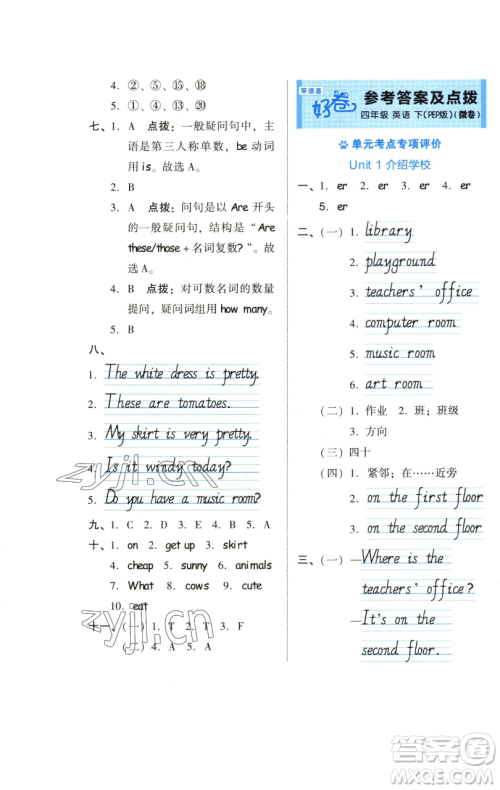 4. ②、⑤、⑮、⑯
5. ①、④、⑬、⑳
七、1. A 点拨：一般疑问句中，主
语是第三人称单数，be 动词
用 is。故选 A。
2. B
3. A 点拨：问句是以 Are 开头
的一般疑问句，结构是“Are
these/those + 名词复数？”。故
选 A。
4. B 点拨：对可数名词的数量
提问，疑问词组用 how many。
5. B
八、
1. The white dress is pretty.
2. These are tomatoes.
3. My skirt is very pretty.
4. Is it windy today?
5. Do you have a music room?
九、1. C 2. D 3. A 4. B 5. A
十、1. on 2. get up 3. skirt
4. cheap 5. sunny 6. animals
7. What 8. cows 9. cute
10. eat
十一、（一）1. T 2. T 3. F
（二）4. A 5. A
zyjl.cn
zyjl.cn
荣德基
好卷
参考答案及点拨
四年级 英语 下（PEP版）（微卷）
单元考点专项评价
Unit 1 介绍学校
一、1. er 2. er 3. er 4. er
5. er
二、（一）1. library
2. playground
3. teachers' office
4. computer room
5. music room
6. art room
（二）1. 作业 2. 班；班级
3. 方向
（三）四十
（四）1. 紧邻；在……近旁
2. on the first floor
3. on the second floor
三、（一）—Where is the
teachers' office?
—It's on the
second floor.
答案圈
MXQE.COM